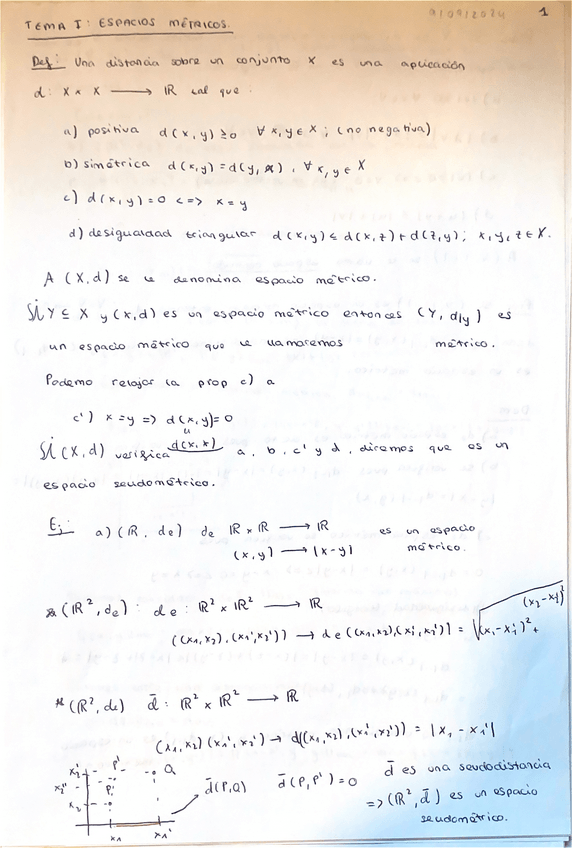 9/09/2024 1
TEMA I: ESPACIOS MÉTRICOS.
Def: Una distancia sobre un conjunto X es una aplicación
d: X × X ⟶ IR tal que
a) positiva d(x,y) ≥ 0 ∀ x,y ∈ X ; (no negativa)
b) simétrica d(x,y) = d(y,x), ∀ x,y ∈ X
c) d(x,y) = 0 <=> x = y
d) desigualdad triangular d(x,y) ≤ d(x,z) + d(z,y); x,y,z ∈ X.
A (X,d) se le denomina espacio métrico.
Si Y ⊆ X y (x,d) es un espacio métrico entonces (Y, d|y) es
un espacio métrico que le llamaremos métrico.
Podemo relajar la prop c) a
c') x = y => d(x,y) = 0
d(x,x)
Si (X,d) verifica a, b, c' y d, diremos que es un
espacio seudométrico.
Ej: a) (IR, de) de IR × IR ⟶ IR es un espacio
(x,y) ⟶ |x-y| métrico.
* (IR², de): de: IR² × IR² ⟶ IR
((x1,x2),(x1',x2')) → de((x1,x2),(x1',x2')) = √(x1-x1')² + (x2-x2')²
* (IR², de) d̄: IR² × IR² ⟶ IR
(x1,x2)(x1',x2') → d((x1,x2),(x1',x2')) = |x1 - x1'|
x2' P' Q d̄(P,Q) d̄(P,P') = 0 d̄ es una seudodistancia
x2'' P
x2 => (IR², d̄) es un espacio
x1 x1' seudométrico.